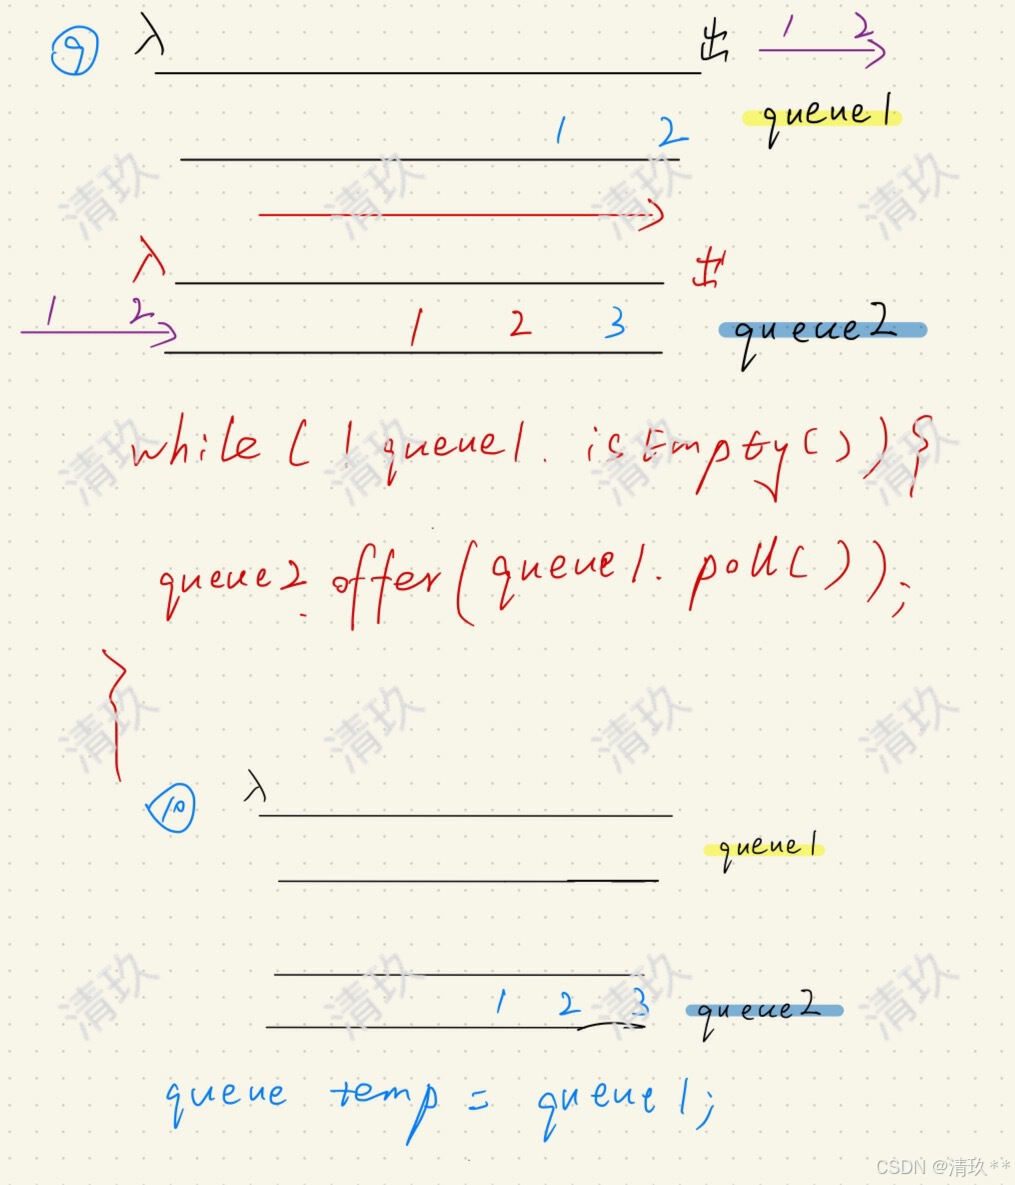 ⑨ 入 出 1 2
queue1
1 2
入 出
1 2 1 2 3 queue2
while ( ! queue1. isEmpty( ) ) {
queue2. offer( queue1. poll( ) );
}
⑩ 入
queue1
1 2 3 queue2
queue temp = queue1;
清玖
CSDN @清玖**